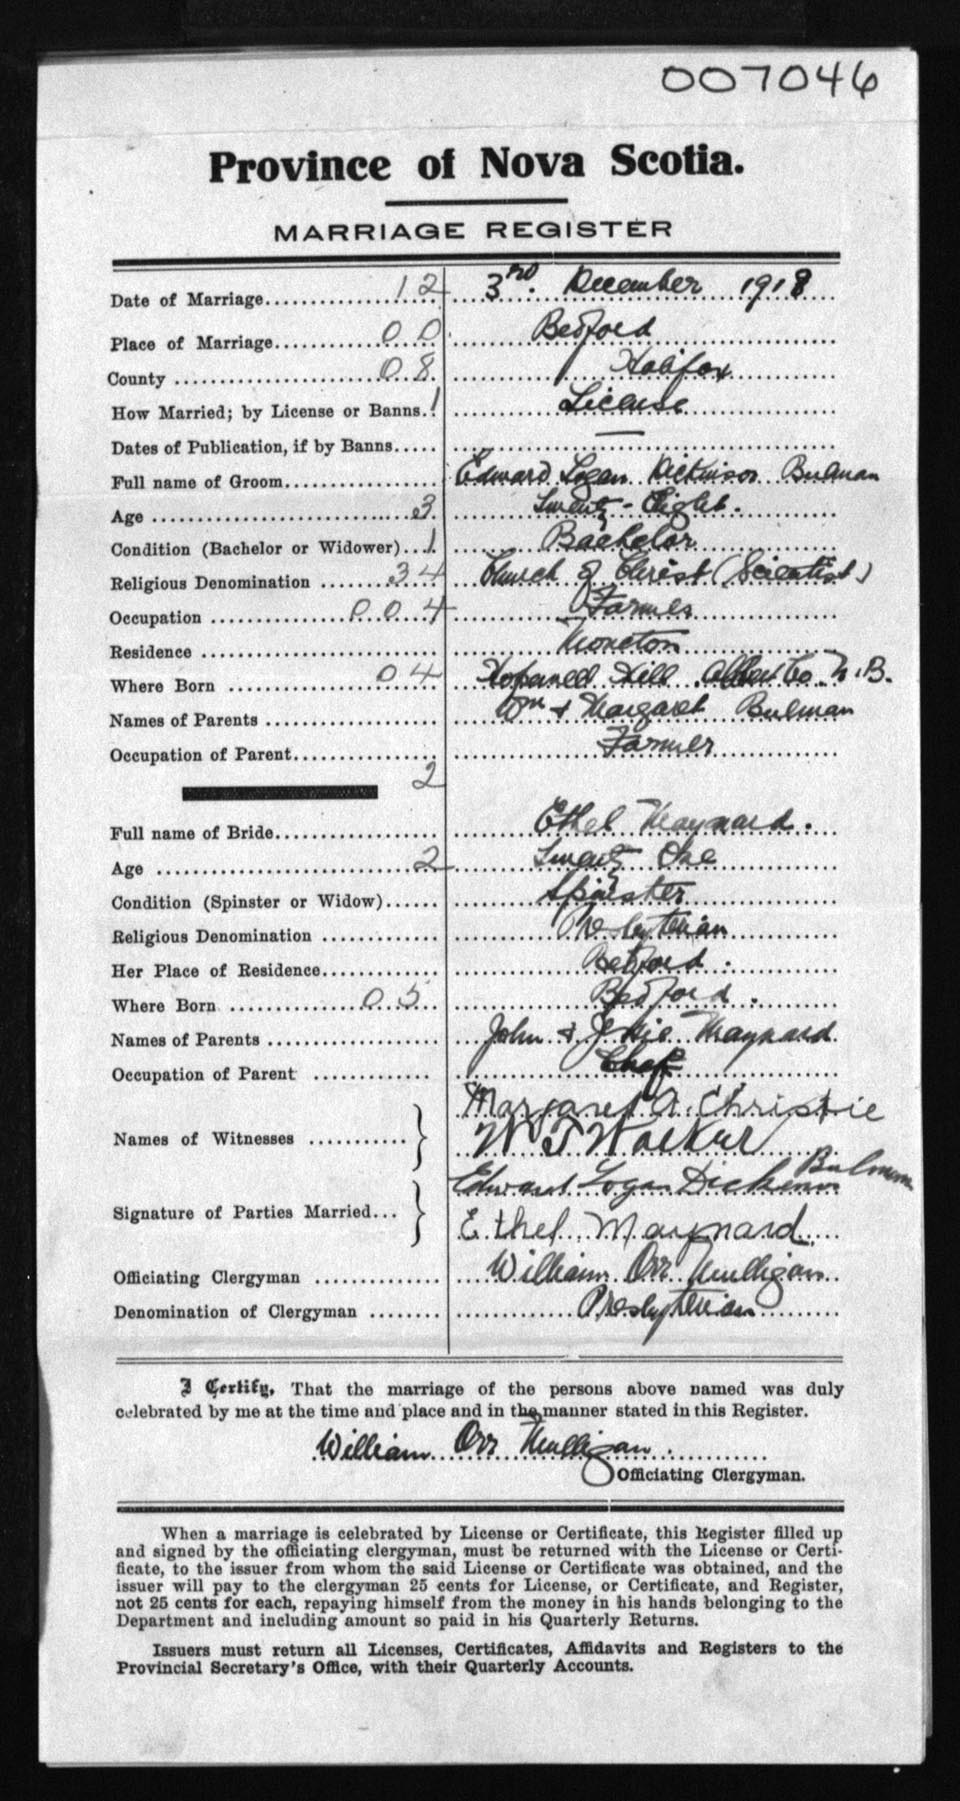 007046
Province of Nova Scotia.
MARRIAGE REGISTER
Date of Marriage 12 3rd. December 1918
Place of Marriage 00 Bedford
County 08 Halifax
How Married; by License or Banns 1 License
Dates of Publication, if by Banns —
Full name of Groom Edward Logan Dickinson Bulman
Age 3 Twenty-Eight.
Condition (Bachelor or Widower) 1 Bachelor
Religious Denomination 34 Church of Christ (Scientist)
Occupation 004 Farmer
Residence Moncton
Where Born 04 Hopewell Hill Albert Co. N.B.
Names of Parents Wm & Margaret Bulman
Occupation of Parent Farmer
2
Full name of Bride Ethel Maynard.
Age 2 Twenty One
Condition (Spinster or Widow) Spinster
Religious Denomination Presbyterian
Her Place of Residence Bedford.
Where Born 05 Bedford.
Names of Parents John & Maynard
Occupation of Parent Chef
Names of Witnesses Margaret A. Christie
W T Walker
Signature of Parties Married Edward Logan Dickinson Bulman
Ethel Maynard
Officiating Clergyman William Orr Mulligan
Denomination of Clergyman Presbyterian
I Certify, That the marriage of the persons above named was duly
celebrated by me at the time and place and in the manner stated in this Register.
William Orr Mulligan.
Officiating Clergyman.
When a marriage is celebrated by License or Certificate, this Register filled up
and signed by the officiating clergyman, must be returned with the License or Certi-
ficate, to the issuer from whom the said License or Certificate was obtained, and the
issuer will pay to the clergyman 25 cents for License, or Certificate, and Register,
not 25 cents for each, repaying himself from the money in his hands belonging to the
Department and including amount so paid in his Quarterly Returns.
Issuers must return all Licenses, Certificates, Affidavits and Registers to the
Provincial Secretary's Office, with their Quarterly Accounts.